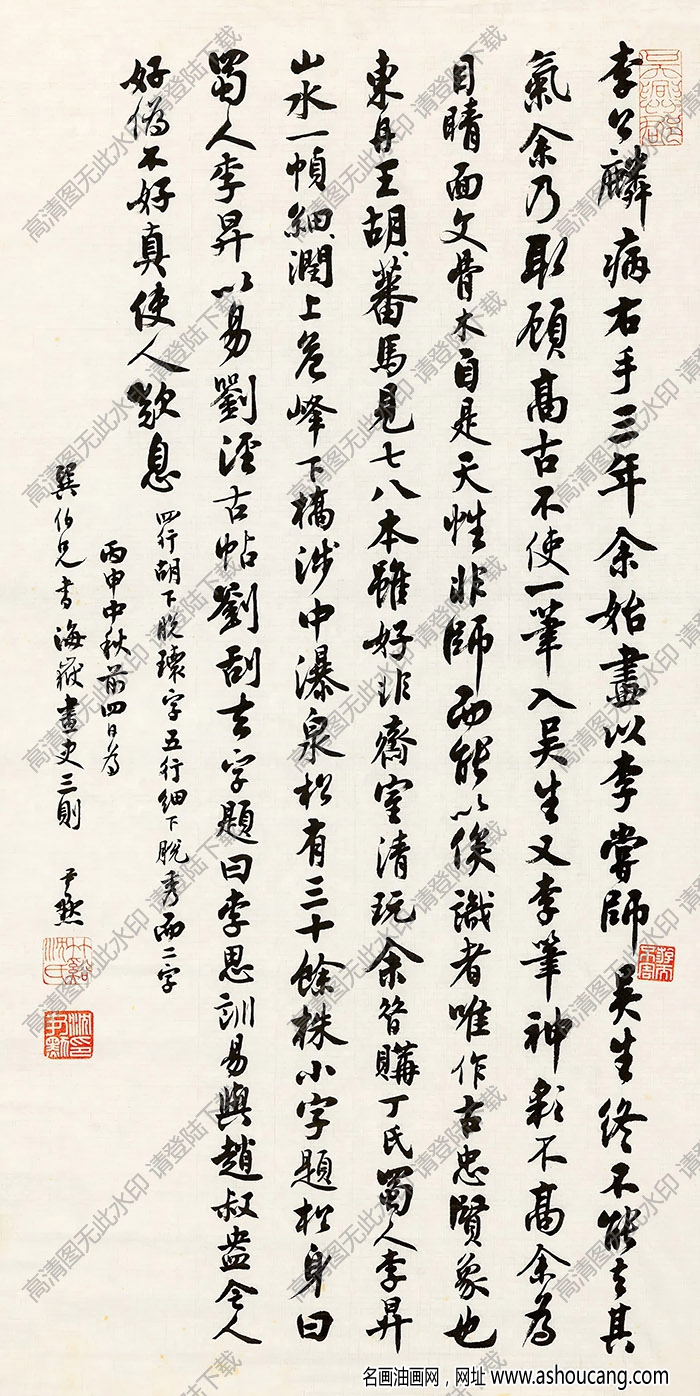 李公麟病右手三年余始畫以李嘗師吳生終不能去其
氣余乃取顧高古不使一筆入吳生又李筆神彩不高余為
目睛面文骨木自是天性非師而能以俟識者唯作古忠賢象也
東丹王胡蕃馬見七八本雖好非齋室清玩余昔購丁氏蜀人李昇
山水一幀細潤上危峰下橋涉中瀑泉松有三十餘株小字題松身曰
蜀人李昇以易劉涇古帖劉刮去字題曰李思訓易與趙叔盎今人
好偽不好真使人歎息
四行胡下脫瓌字五行細下脫秀而二字
丙申中秋前四日為
巽伯兄書海嶽畫史三則 尹默
竹谿沈氏
沈尹默印
高清图无此水印 请登陆下载
名画油画网，网址 www.ashoucang.com